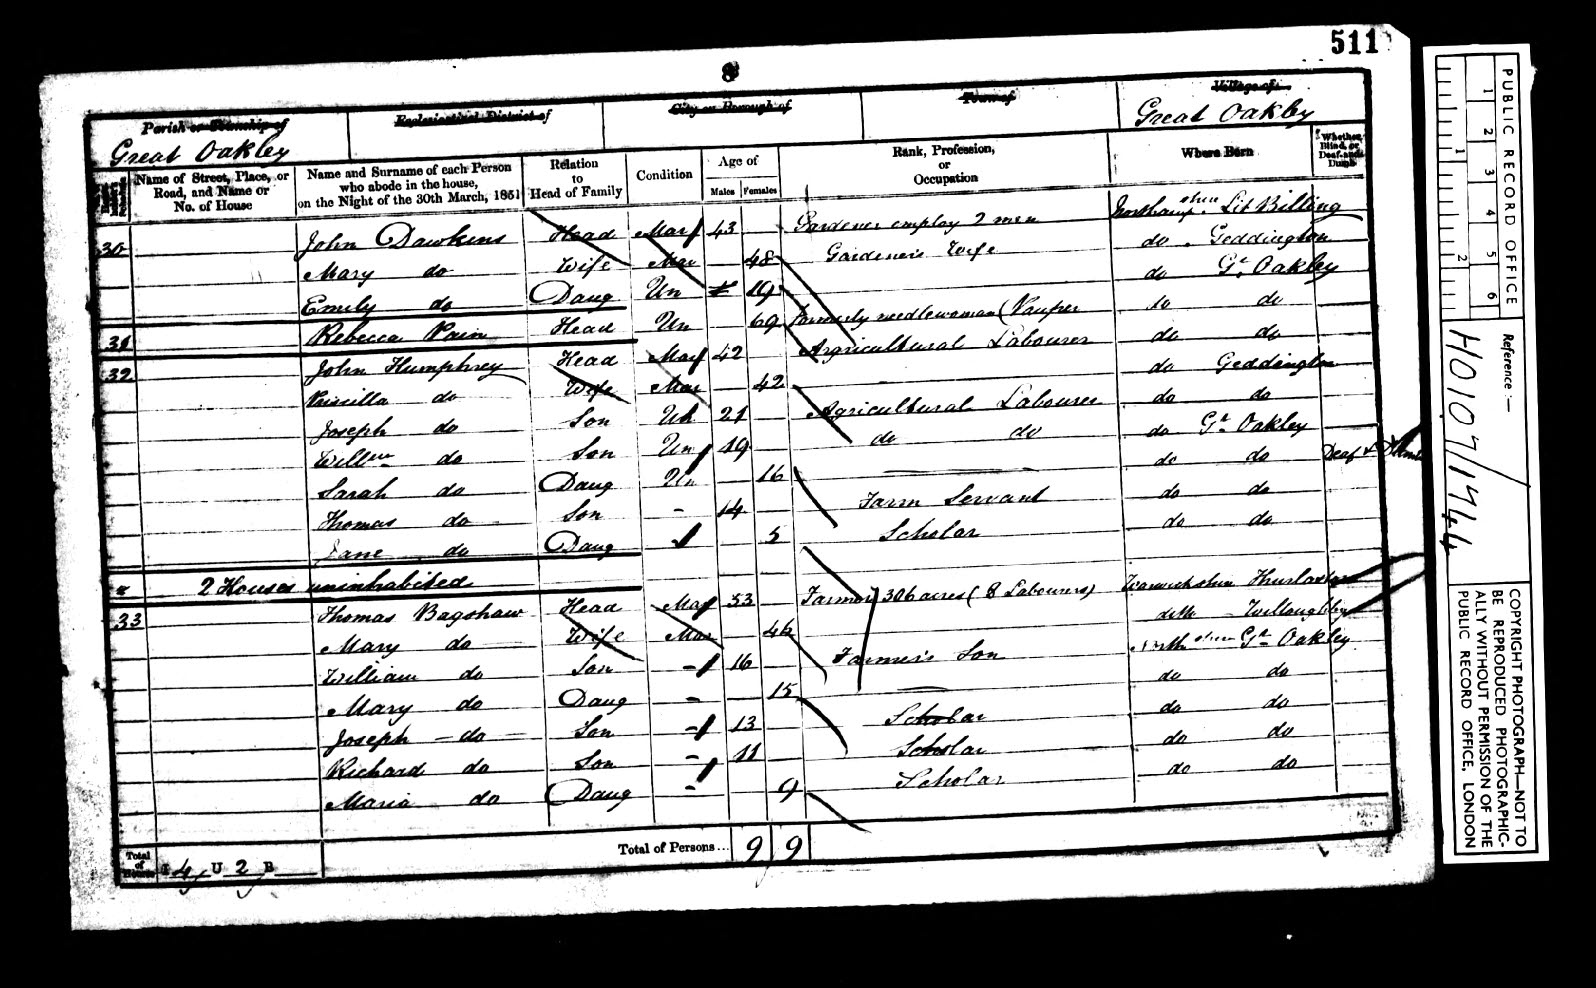 511
8
Parish or Township of
Great Oakley
Ecclesiastical District of
City or Borough of
Town of
Village of
Great Oakley
Name of Street, Place, or Road, and Name or No. of House
Name and Surname of each Person who abode in the house, on the Night of the 30th March, 1851
Relation to Head of Family
Condition
Age of
Males Females
Rank, Profession, or Occupation
Where Born
Whether Blind, or Deaf-and-Dumb
30 John Dawkins Head Mar 43 Gardener employ 2 men Northampshire Lit Billing
Mary do Wife Mar 48 Gardener's Wife do Geddington
Emily do Daug Un 19 do Gt Oakley
31 Rebecca Pain Head Un 69 Formerly needlewoman (Pauper do do
32 John Humphrey Head Mar 42 Agricultural Labourer do do
Priscilla do Wife Mar 42 do Geddington
Joseph do Son Un 21 Agricultural Labourer do do
Willm do Son Un 19 do do do Gt Oakley
Sarah do Daug Un 16 do do Deaf & Dumb
Thomas do Son - 14 Farm Servant do do
Jane do Daug 5 Scholar do do
2 Houses uninhabited
33 Thomas Bagshaw Head Mar 53 Farmer 306 acres (8 Labourers) Warwickshire Thurlaston
Mary do Wife Mar 46 ditto Willoughby
William do Son - 16 Farmer's Son Northshire Gt Oakley
Mary do Daug - 15 do do
Joseph - do - Son - 13 Scholar do do
Richard do Son - 11 Scholar do do
Maria do Daug - 9 Scholar do do
Total of Houses I 4 U 2 B
Total of Persons... 9 9
PUBLIC RECORD OFFICE
1 2 3 4 5 6
1 2
Reference:—
HO107/1744
COPYRIGHT PHOTOGRAPH—NOT TO
BE REPRODUCED PHOTOGRAPHIC-
ALLY WITHOUT PERMISSION OF THE
PUBLIC RECORD OFFICE, LONDON